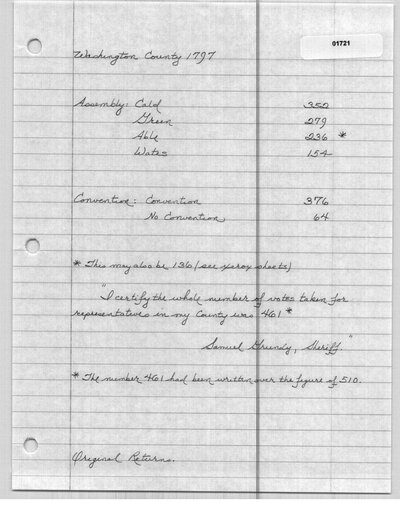 01721
Washington County 1797
Assembly: Cald 352
Green 279
Able 236 *
Wates 154
Convention: Convention 376
No Convention 64
* This may also be 136 (see xerox sheets)
"I certify the whole number of votes taken for
representatives in my County was 461 *
Samuel Grundy, Sheriff."
* The number 461 had been written over the figure of 510.
Original Returns.